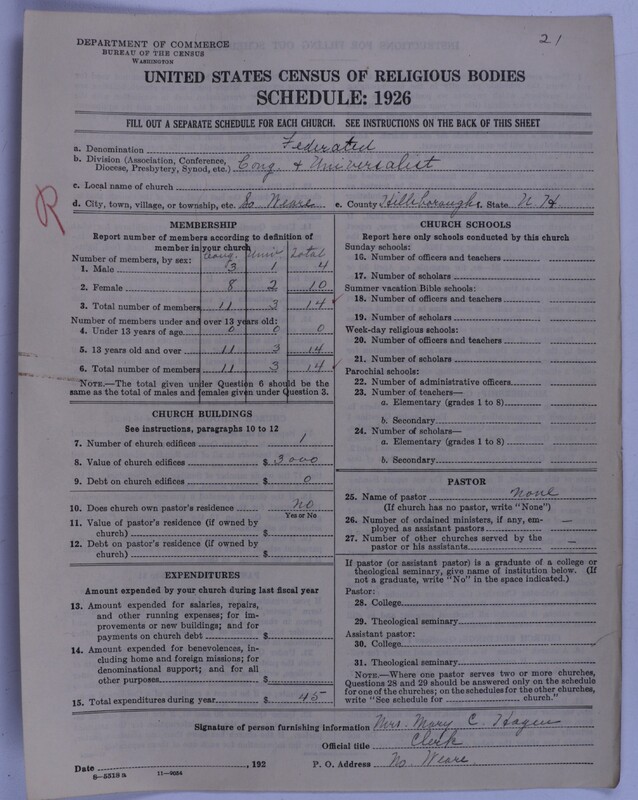 21
DEPARTMENT OF COMMERCE
BUREAU OF THE CENSUS
WASHINGTON
UNITED STATES CENSUS OF RELIGIOUS BODIES
SCHEDULE: 1926
FILL OUT A SEPARATE SCHEDULE FOR EACH CHURCH. SEE INSTRUCTIONS ON THE BACK OF THIS SHEET
a. Denomination Federated
b. Division (Association, Conference, Diocese, Presbytery, Synod, etc.) Cong. & Universalist
c. Local name of church
d. City, town, village, or township, etc. So Weare e. County Hillsborough f. State N. H
R
MEMBERSHIP
Report number of members according to definition of
member in your church
Cong. Univ Total
Number of members, by sex:
1. Male 3 1 4
2. Female 8 2 10
3. Total number of members 11 3 14
Number of members under and over 13 years old:
4. Under 13 years of age 0 0 0
5. 13 years old and over 11 3 14
6. Total number of members 11 3 14
NOTE.—The total given under Question 6 should be the
same as the total of males and females given under Question 3.
CHURCH BUILDINGS
See instructions, paragraphs 10 to 12
7. Number of church edifices 1
8. Value of church edifices $ 3000
9. Debt on church edifices $ 0
10. Does church own pastor's residence? No
Yes or No
11. Value of pastor's residence (if owned by
church) $
12. Debt on pastor's residence (if owned by
church) $
EXPENDITURES
Amount expended by your church during last fiscal year
13. Amount expended for salaries, repairs,
and other running expenses; for im-
provements or new buildings; and for
payments on church debt $
14. Amount expended for benevolences, in-
cluding home and foreign missions; for
denominational support; and for all
other purposes $
15. Total expenditures during year $ 45
CHURCH SCHOOLS
Report here only schools conducted by this church
Sunday schools:
16. Number of officers and teachers
17. Number of scholars
Summer vacation Bible schools:
18. Number of officers and teachers
19. Number of scholars
Week-day religious schools:
20. Number of officers and teachers
21. Number of scholars
Parochial schools:
22. Number of administrative officers
23. Number of teachers—
a. Elementary (grades 1 to 8)
b. Secondary
24. Number of scholars—
a. Elementary (grades 1 to 8)
b. Secondary
PASTOR
25. Name of pastor None
(If church has no pastor, write "None")
26. Number of ordained ministers, if any, em-
ployed as assistant pastors —
27. Number of other churches served by the
pastor or his assistants —
If pastor (or assistant pastor) is a graduate of a college or
theological seminary, give name of institution below. (If
not a graduate, write "No" in the space indicated.)
Pastor:
28. College
29. Theological seminary
Assistant pastor:
30. College
31. Theological seminary
NOTE.—Where one pastor serves two or more churches,
Questions 28 and 29 should be answered only on the schedule
for one of the churches; on the schedules for the other churches,
write "See schedule for church."
Signature of person furnishing information Mrs. Mary C. Hagen
Official title Clerk
Date , 192 P. O. Address No. Weare
8—5318a 11—9054